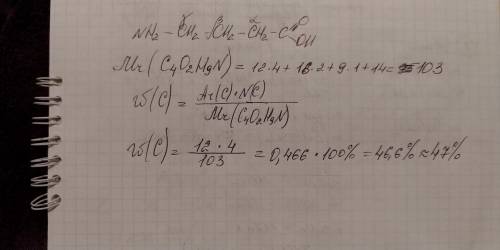 NH₂ – ᵞCH₂ – ᵝCH₂ – ᵅCH₂ – C =O OH
Mr(C₄O₂H₉N) = 12·4 + 16·2 + 9·1 + 14 = 103
W(C) = Ar(C)·N(C) / Mr(C₄O₂H₉N)
W(C) = 12·4 / 103 = 0,466 · 100% = 46,6% ≈ 47%